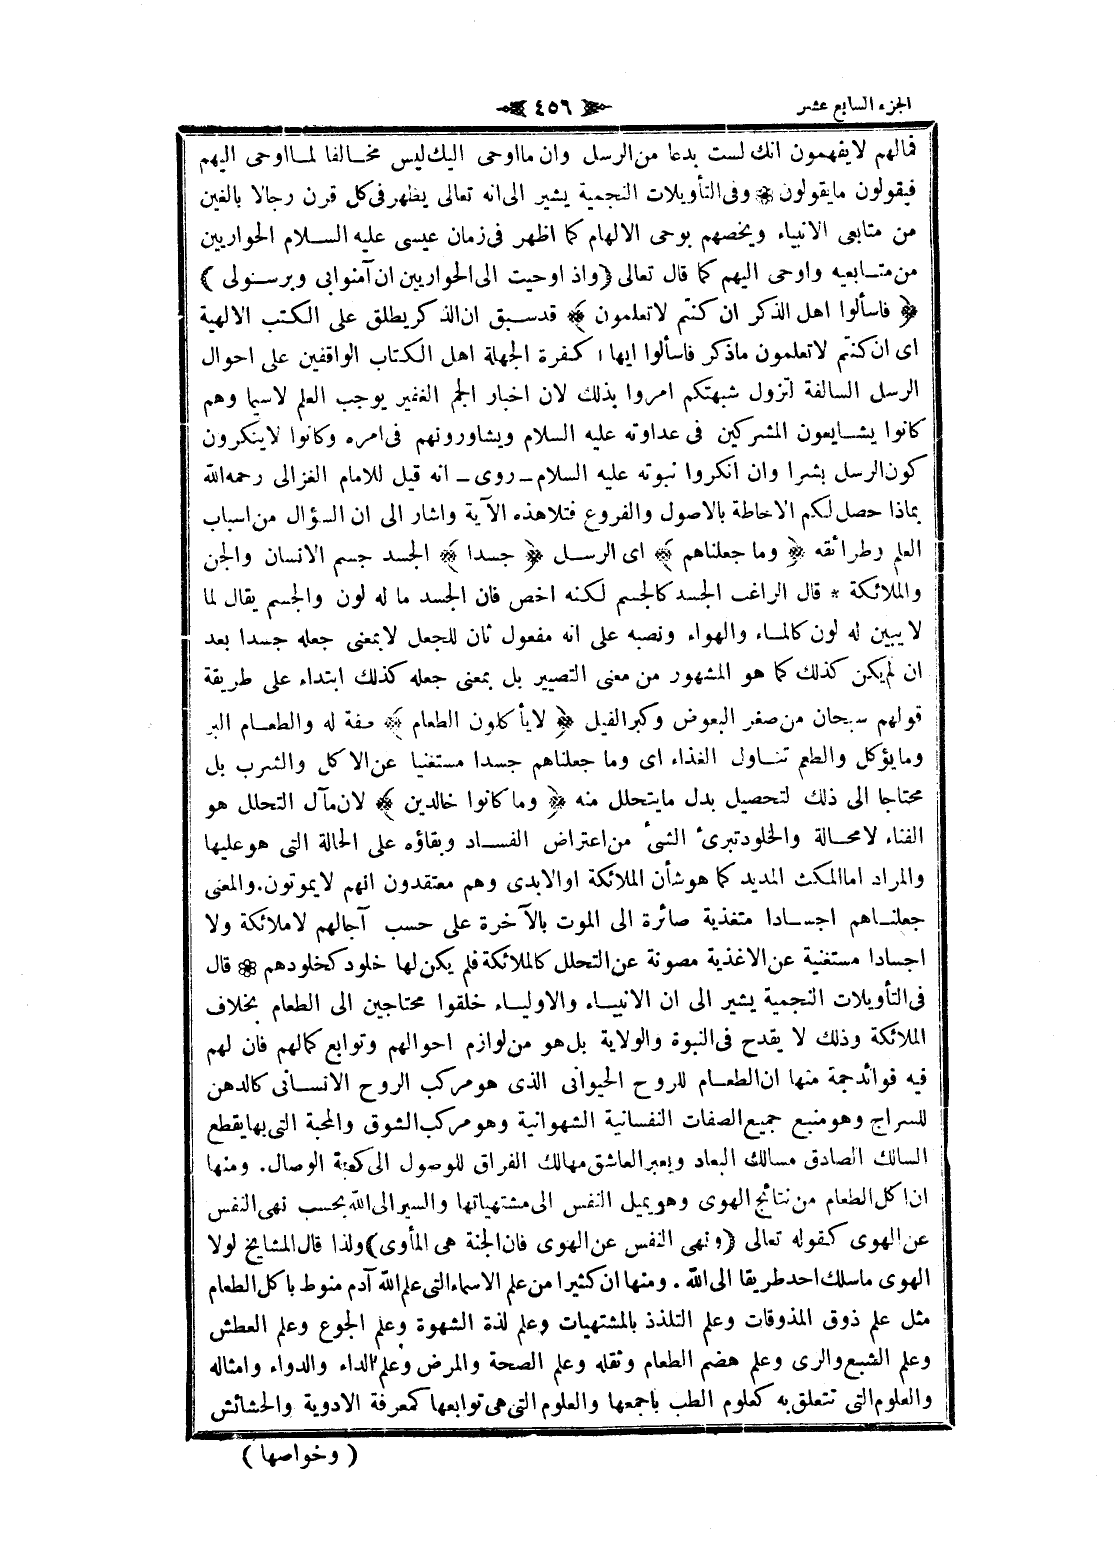 الجزء السابع عشر
٤٥٦
فمالهم لايفهمون انك لست بدعا من الرسل وان مااوحى اليك ليس مخالفا لمااوحى اليهم
فيقولون مايقولون ❁ وفى التأويلات النجمية يشير الى انه تعالى يظهر فى كل قرن رجالا بالغين
من متابعى الانبياء ويخصهم بوحى الالهام كما اظهر فى زمان عيسى عليه السلام الحواريين
من متابعيه واوحى اليهم كما قال تعالى (واذ اوحيت الى الحواريين ان آمنوابى وبرسولى)
﴿ فاسألوا اهل الذكر ان كنتم لاتعلمون ﴾ قدسبق ان الذكر يطلق على الكتب الالهية
اى ان كنتم لاتعلمون ماذكر فاسألوا ايها الكفرة الجهلة اهل الكتاب الواقفين على احوال
الرسل السالفة لتزول شبهتكم امروا بذلك لان اخبار الجم الغفير يوجب العلم لاسيما وهم
كانوا يشايعون المشركين فى عداوته عليه السلام ويشاورونهم فى امره وكانوا لاينكرون
كون الرسل بشرا وان انكروا نبوته عليه السلام ـ روى ـ انه قيل للامام الغزالى رحمه الله
بماذا حصل لكم الاحاطة بالاصول والفروع فتلاهذه الآية واشار الى ان السؤال من اسباب
العلم وطرائقه ﴿ وما جعلناهم ﴾ اى الرسل ﴿ جسدا ﴾ الجسد جسم الانسان والجن
والملائكة * قال الراغب الجسد كالجسم لكنه اخص فان الجسد ما له لون والجسم يقال لما
لا يبين له لون كالماء والهواء ونصبه على انه مفعول ثان للجعل لابمعنى جعله جسدا بعد
ان لم يكن كذلك كما هو المشهور من معنى التصيير بل بمعنى جعله كذلك ابتداء على طريقة
قولهم سبحان من صغر البعوض وكبر الفيل ﴿ لايأكلون الطعام ﴾ صفة له والطعام البر
ومايؤكل والطعم تناول الغذاء اى وما جعلناهم جسدا مستغنيا عن الاكل والشرب بل
محتاجا الى ذلك لتحصيل بدل مايتحلل منه ﴿ وما كانوا خالدين ﴾ لان مآل التحلل هو
الفناء لامحالة والخلود تبرئ الشئ من اعتراض الفساد وبقاؤه على الحالة التى هو عليها
والمراد اماالمكث المديد كما هو شأن الملائكة اوالابدى وهم معتقدون انهم لايموتون. والمعنى
جعلناهم اجسادا متغذية صائرة الى الموت بالآخرة على حسب آجالهم لاملائكة ولا
اجسادا مستغنية عن الاغذية مصونة عن التحلل كالملائكة فلم يكن لها خلود كخلودهم ❁ قال
فى التأويلات النجمية يشير الى ان الانبياء والاولياء خلقوا محتاجين الى الطعام بخلاف
الملائكة وذلك لا يقدح فى النبوة والولاية بل هو من لوازم احوالهم وتوابع كمالهم فان لهم
فيه فوائد جمة منها ان الطعام للروح الحيوانى الذى هو مركب الروح الانسانى كالدهن
للسراج وهو منبع جميع الصفات النفسانية الشهوانية وهو مركب الشوق والمحبة التى بها يقطع
السالك الصادق مسالك البعاد ويعبر العاشق مهالك الفراق للوصول الى كعبة الوصال. ومنها
ان اكل الطعام من نتائج الهوى وهو يميل النفس الى مشتهياتها والسير الى الله بحسب نهى النفس
عن الهوى كقوله تعالى (ونهى النفس عن الهوى فان الجنة هى المأوى) ولذا قال المشايخ لولا
الهوى ماسلك احد طريقا الى الله . ومنها ان كثيرا من علم الاسماء التى علم الله آدم منوط باكل الطعام
مثل علم ذوق المذوقات وعلم التلذذ بالمشتهيات وعلم لذة الشهوة وعلم الجوع وعلم العطش
وعلم الشبع والرى وعلم هضم الطعام وثقله وعلم الصحة والمرض وعلم الداء والدواء وامثاله
والعلوم التى تتعلق به كعلوم الطب باجمعها والعلوم التى هى توابعها كمعرفة الادوية والحشائش
( وخواصها )